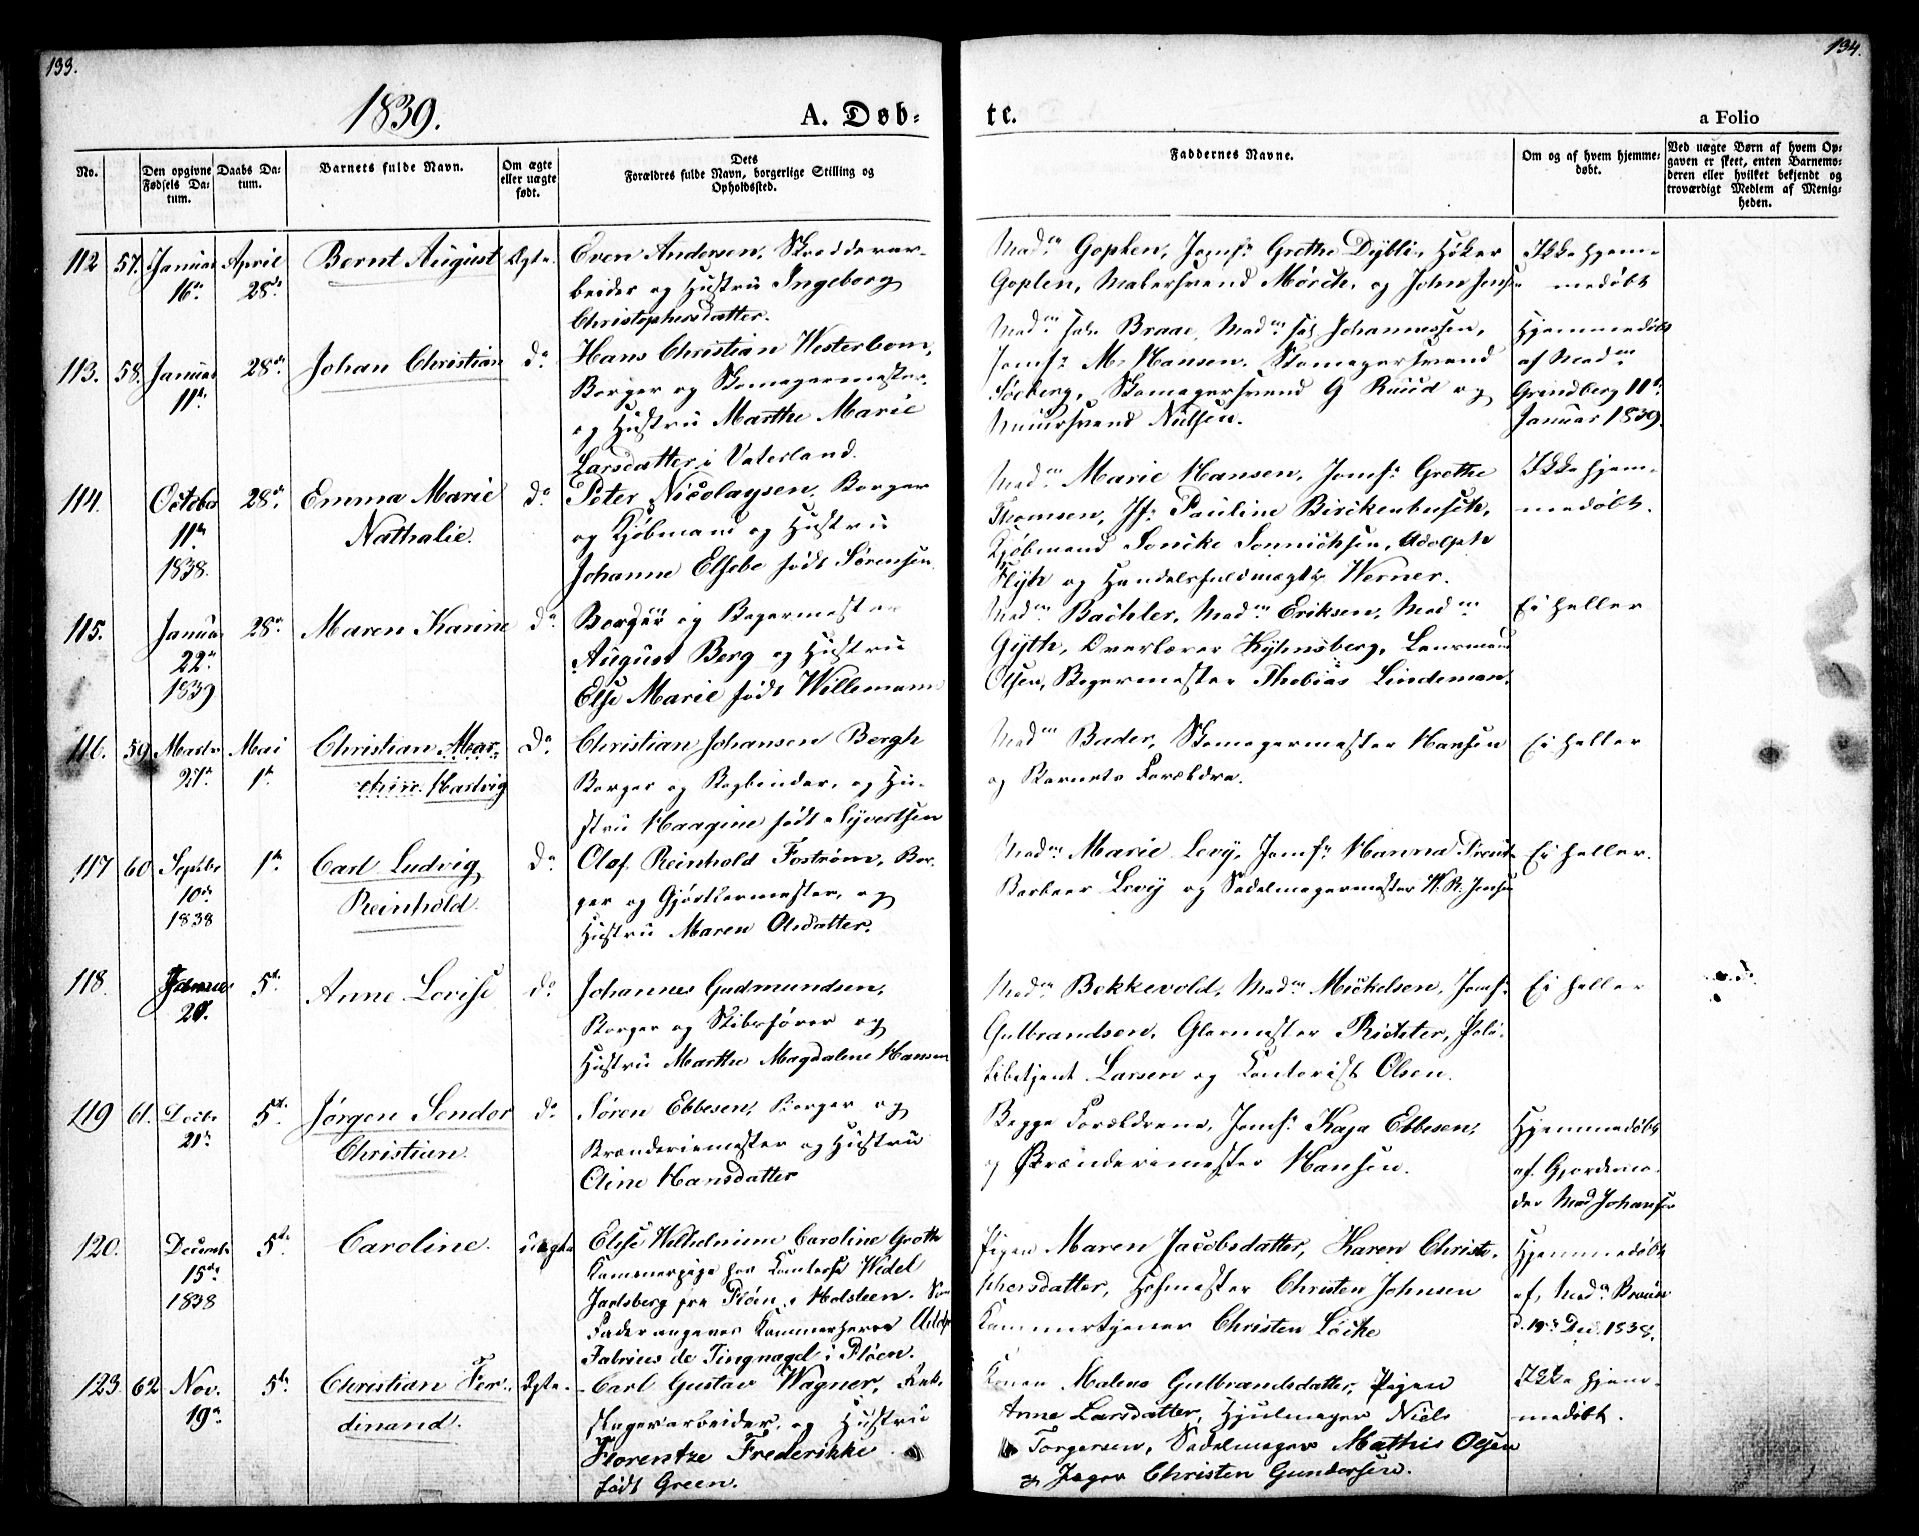 133.
1839.
A. Døb-
No.
Den opgivne Fødsels Datum.
Daabs Datum.
Barnets fulde Navn.
Om ægte eller uægte født.
Dets
Forældres fulde Navn, borgerlige Stilling og
Opholdssted.
112 57. Januar 16de April 28de Bernt August Ægte. Even Andersen, Skrædderar-
beider og Hustru Ingeborg
Christophersdatter.
113. 58. Januar 11te 28de Johan Christian do Hans Christian Westerbom,
Borger og Skomagermester
og Hustru Marthe Marie
Larsdatter i Vaterland.
114. October 11te 1838. 28de Emma Marie Nathalie. do Peter Nicolaysen, Borger
og Kjøbmand og Hustru
Johanne Elsebe født Sørensen
115. Januar 22de 1839 28de Maren Karine do Borger og Bagermester
August Berg og Hustru
Else Marie født Willemann
116. 59 Marts 27de Mai 1te Christian Mar-
thin Hartvig do Christian Johansen Bergh
Borger og Bogbinder, og Hu-
stru Haagine født Syvertsen
117 60 Septbr 10de 1838 1te Carl Ludvig Reinhold. do Olaf Reinhold Fostrøm, Bor-
ger og Gjørtlermester, og
Hustru Maren Olsdatter.
118. Januar 5te Anne Lovise do Johannes Gudmundsen,
Borger og Skibsfører og
Hustru Marthe Magdalene Hansen
119 61. Decbr 21de 5te Jørgen Sender Christian. do Søren Ebbesen, Borger og
Brænderiemester og Hustru
Oline Hansdatter
120. Decemb. 15de 1838 5te Caroline. uægte Elise Wilhelmine Caroline Groth
Kammerpige hos Comtesse Wedel
Jarlsberg fra Pløen i Holsteen. Som
Fader angives Kammerherre Adolp
Fabrius de Tingnagel i Pløen.
123 62 Nov. 19de 5te Christian Fer-
dinand. Ægte. Carl Gustav Wagner,
arbeider, og Hustru
Florentze Frederikke
født Green.
134.
te.
a Folio
Faddernes Navne.
Om og af hvem hjemme-
døbt.
Ved uægte Børn af hvem Op-
gaven er skeet, enten Barnemo-
deren eller hvilket bekjendt og
troværdigt Medlem af Menig-
heden.
Madm Goplen, Jomfr Grethe Dybli, Høker
Goplen, Malersvend Mørch, og John Jensen
Ikke hjem-
medøbt
Madm Braae, Madm Johannessen,
Jomfr M. Hansen, Skomagersvend
Soeberg, Skomagersvend G Ruud og
Muursvend Nielsen.
Hjemmedøbt
af Madm
Grindberg 11te
Januar 1839.
Madm Marie Hansen, Jomfr Grethe
Thomsen, Jfr Pauline Birckenbusch,
Kjøbmand Soncke Sonnichsen, Adolph
Flyh og Handelsfuldmægtig Werner.
Ikke hjem-
medøbt.
Madm Bachler, Madm Eriksen, Madm
Gyth, Overlærer Kylensberg, Lensmand
Olsen, Bagermester Thobias Lindeman.
Ei heller
Madm Bader, Skomagermester Hansen
og Barnets Forældre.
Ei heller
Madm Marie Levy, Jomfr Hanna
Barbeer Levy og Sadelmagermester W. R. Jensen
Ei heller.
Madm Bekkevold, Madm Mickelsen, Jomfr
Gulbrandsen, Glarmester Richter, Poli-
tibetjent Larsen og Contorist Olsen.
Ei heller
Begge Forældrene, Jomfr Kaja Ebbesen,
og Brænderimester Hansen.
Hjemmedøbt
af Gjordemo-
der Mad Johansen
Pigen Maren Jacobsdatter, Karen Christo-
phersdatter, Hofmester Christen Johnsen
Kammertjener Christen Löcke
Hjemmedøbt
af Madm Braun
d. 19de Dec. 1838.
Konen Malene Gulbrandsdatter, Pigen
Anne Larsdatter, Hjulmager Niels
Torgersen, Sadelmager Mathis Olsen
og Jæger Christen Gundersen.
Ikke hjem-
medøbt.